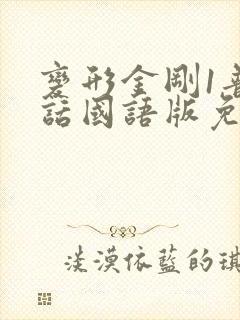 變形金剛1普
話國語版免
淡漠依藍的琪